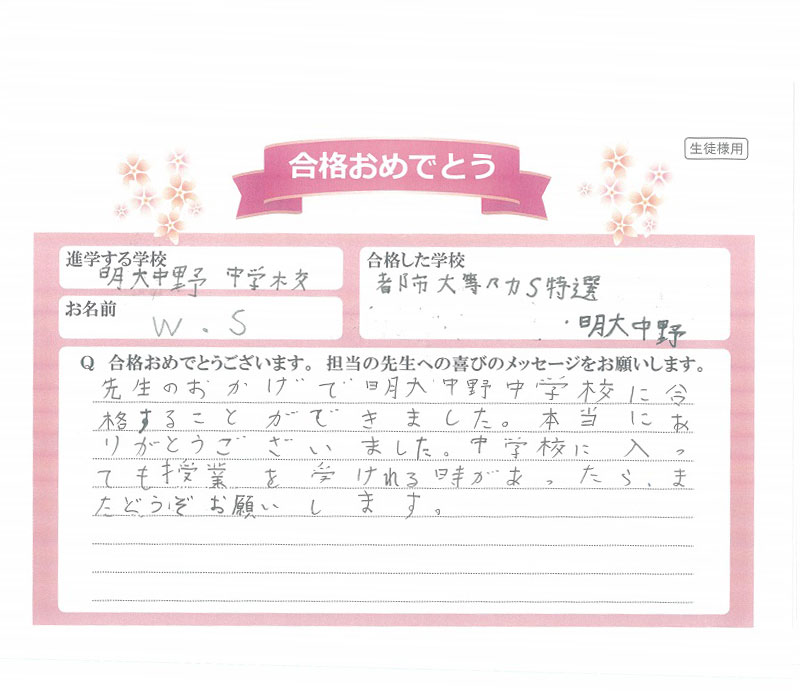 合格おめでとう
生徒様用
進学する学校
明大中野 中学校
お名前
W.S
合格した学校
都市大等々力S特選
・明大中野
Q 合格おめでとうございます。担当の先生への喜びのメッセージをお願いします。
先生のおかげで明大中野中学校に合
格することができました。本当にあ
りがとうございました。中学校に入っ
ても授業を受けれる時があったら、ま
たどうぞお願いします。